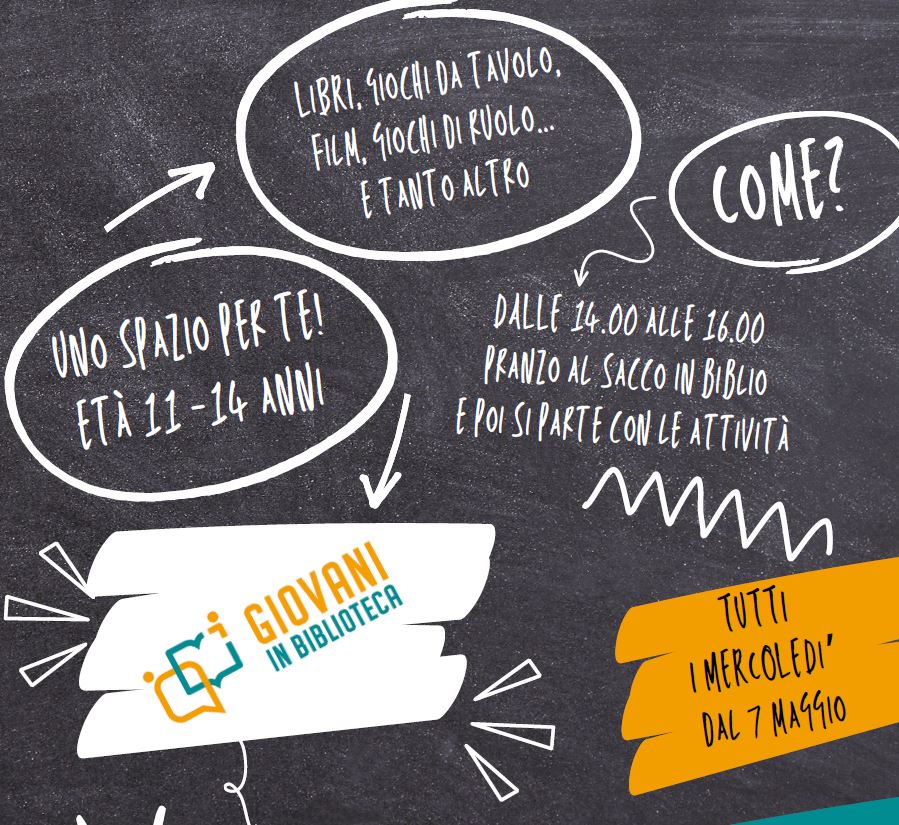 LIBRI, GIOCHI DA TAVOLO,
FILM, GIOCHI DI RUOLO...
E TANTO ALTRO
COME?
UNO SPAZIO PER TE!
ETÀ 11-14 ANNI
DALLE 14.00 ALLE 16.00
PRANZO AL SACCO IN BIBLIO
E POI SI PARTE CON LE ATTIVITÀ
GIOVANI
IN BIBLIOTECA
TUTTI
I MERCOLEDI'
DAL 7 MAGGIO